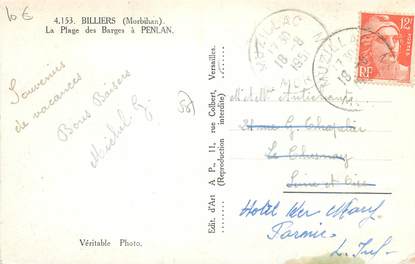 10€
4.153. BILLIERS (Morbihan).
La Plage des Barges à PENLAN.
Souvenirs
de vacances
Bons Baisers
Michel G
Véritable Photo.
Edit. d'Art A P., 11, rue Colbert, Versailles.
(Reproduction interdite)
MUZILLAC
18-8
MUZILLAC
18
12F
RF
POSTES
Le Chesnay
Seine et Oise
Hotel Ker Mary
Pornic
L. Inf